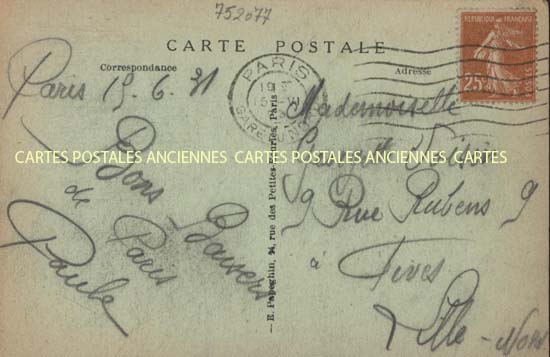 752077
CARTE POSTALE
Correspondance
Adresse
REPUBLIQUE FRANÇAISE
25c
POSTES
PARIS
GARE DU NORD
Paris 15-6.31
Bons Baisers
de Paris
Paule
Mademoiselle
9 Rue Rubens 9
à Fives
Lille-Nord
E. Papeghin, rue des Petites-Écuries, Paris
CARTES POSTALES ANCIENNES CARTES POSTALES ANCIENNES CARTES